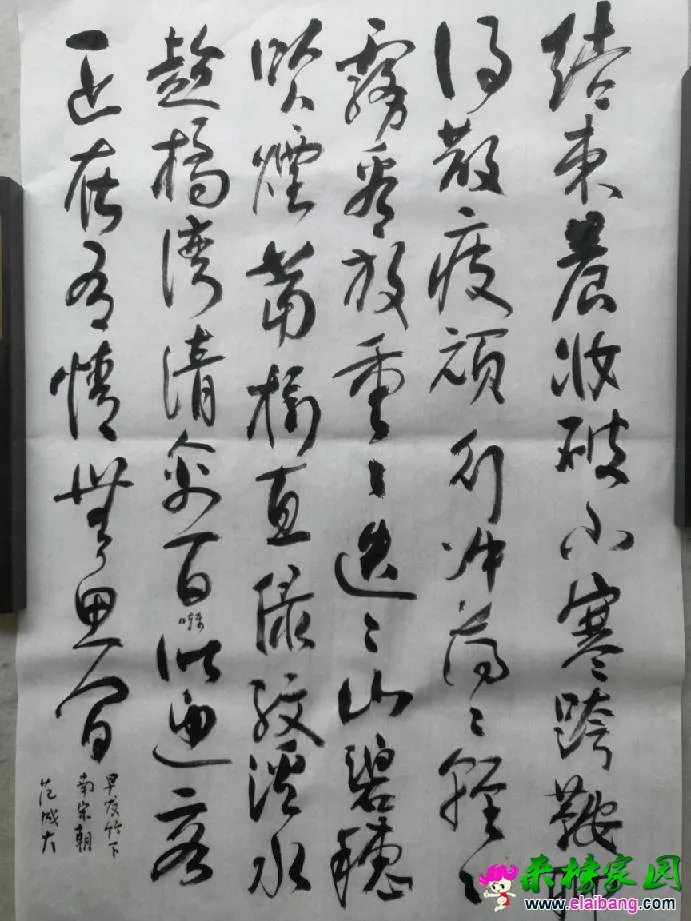 结束晨妆破小寒跨鞍聊
得散疲顽行冲薄々轻々
霧看放重々迭々山碧穗
吹煙當樹直绿纹溪水
趁橋湾清禽百啭似迎客
正在有情無思间
早发竹下
南宋朝
范成大
来榜家园
www.elaibang.com